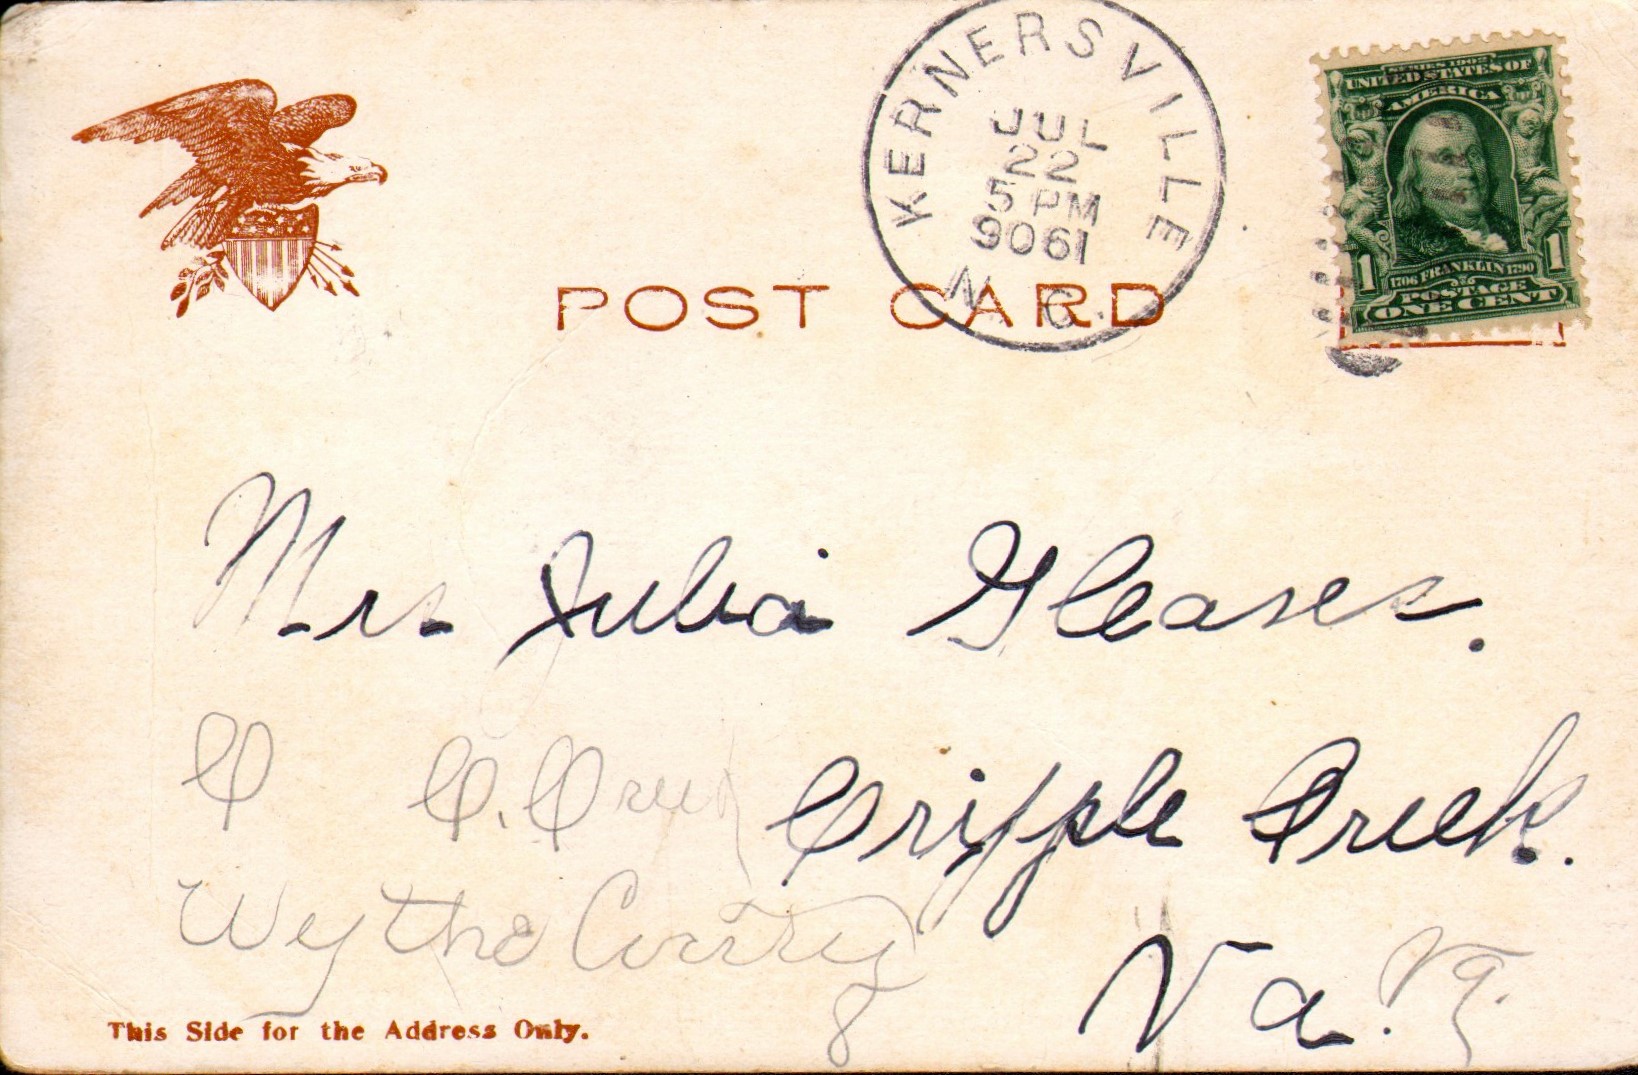 KERNERSVILLE
JUL
22
5 PM
9061
N. C.
SERIES 1902
UNITED STATES OF
AMERICA
1 1
1706 FRANKLIN 1790
POSTAGE
ONE CENT
POST CARD
Mrs. Julia Gleaves.
Cripple Creek.
Va.
C. Creek
Wythe County
Va.
This Side for the Address Only.